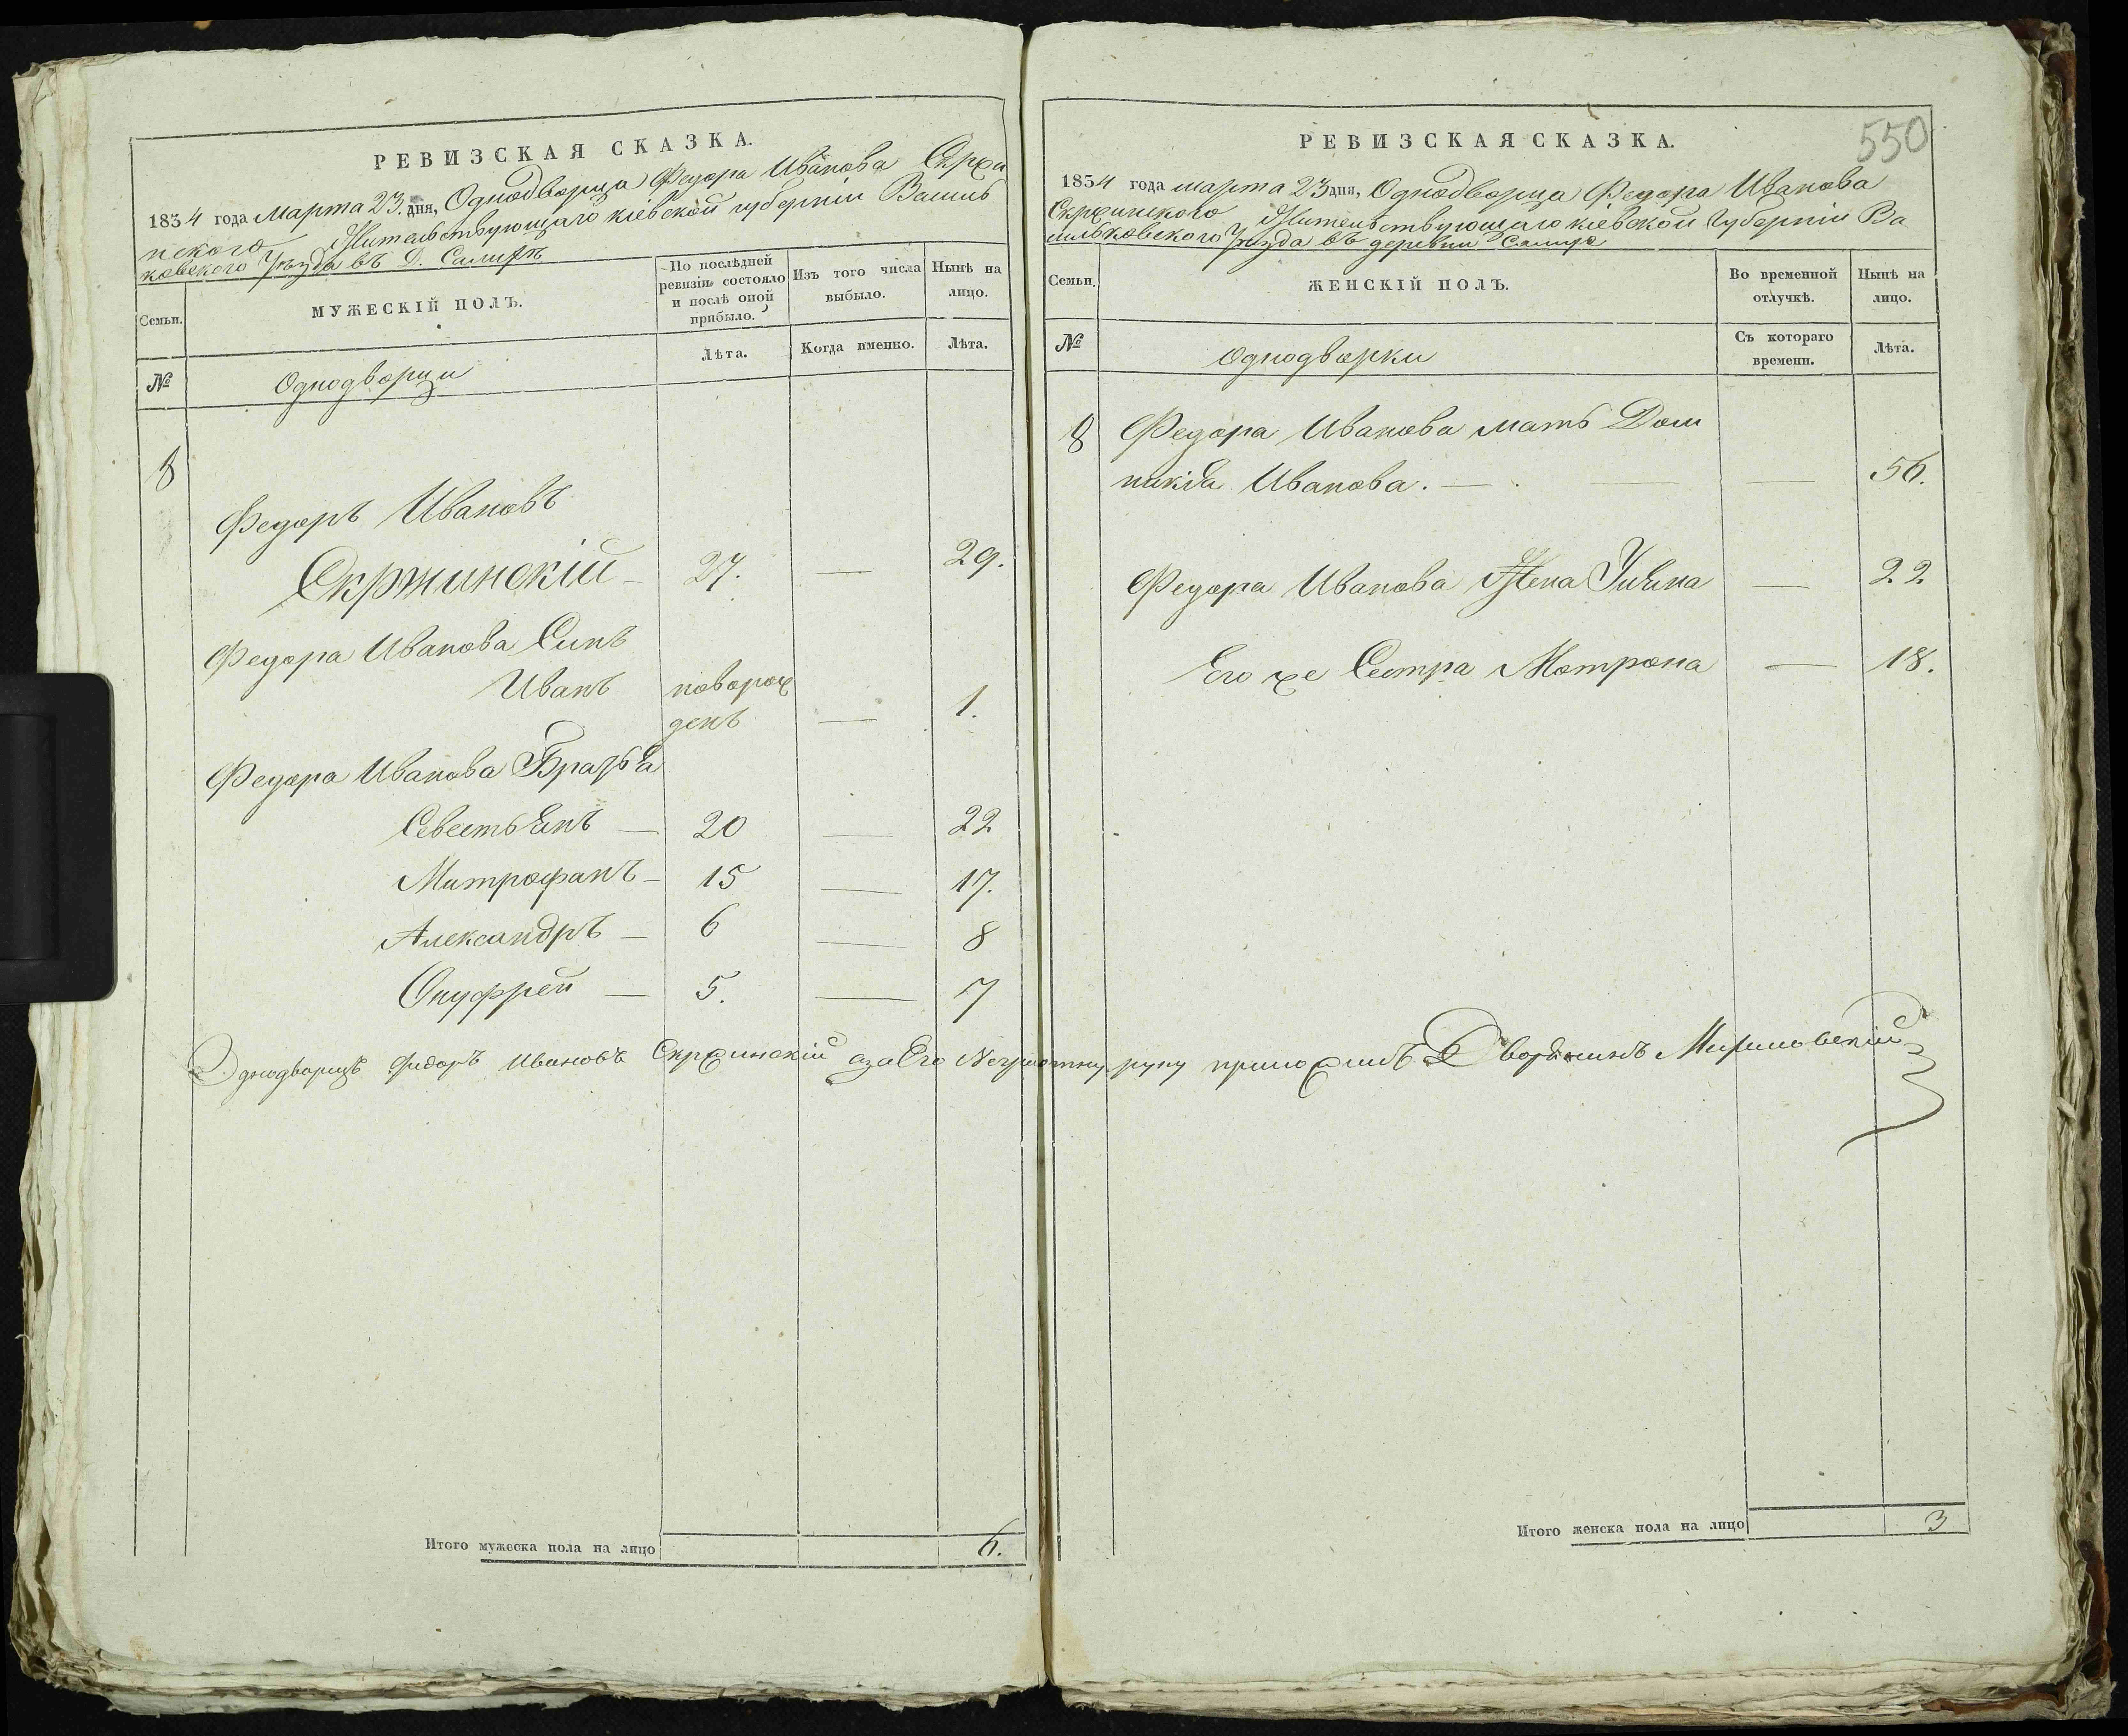 РЕВИЗСКАЯ СКАЗКА.
1834 года Марта 23. дня, Однодворца Федора Иванова Скржи
нского Жительствующаго кіевской губерніи Василь
ковского Уѣзда въ Д.
Семьи.
МУЖЕСКІЙ ПОЛЪ.
По послѣдней ревизіи состояло и послѣ оной прибыло.
Изъ того числа выбыло.
Нынѣ на лицо.
№
Однодворци
Лѣта.
Когда именно.
Лѣта.
8
Федоръ Ивановъ
Скржинскій — 27. — 29.
Федора Иванова Синъ
Иванъ новорож
денъ — 1.
Федора Иванова Братья
Севестьянъ — 20 — 22
Митрофанъ — 15 — 17.
Александръ — 6 — 8
Онуфрей — 5. — 7
Однодворицъ Фидоръ Ивановъ Скржинскій а за Его Неграмотну руку приложилъ Дворянинъ
Итого мужеска пола на лицо 6.
РЕВИЗСКАЯ СКАЗКА.
550
1834 года марта 23 дня, Однодворца Федора Иванова
Скржинского Жительствующаго кіевской Губерніи Ва
сильковского Уѣзда въ деревни
Семьи.
ЖЕНСКІЙ ПОЛЪ.
Во временной отлучкѣ.
Нынѣ на лицо.
№
Однодворки
Съ котораго времени.
Лѣта.
8 Федора Иванова мать Дом
никія Иванова. — 56.
Федора Иванова Жена — 22
Его же Сестра Мотрона — 18.
Итого женска пола на лицо 3